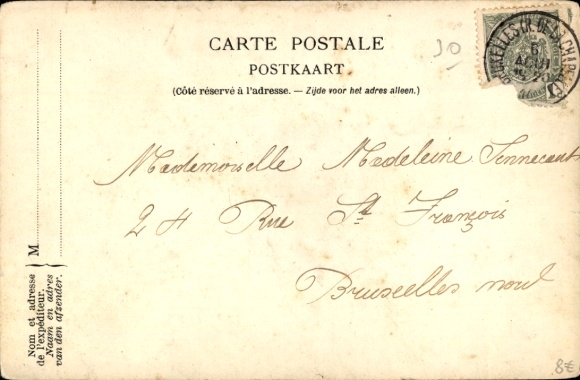 30
CARTE POSTALE
POSTKAART
(Côté réservé à l'adresse. — Zijde voor het adres alleen.)
Mademoiselle Madeleine
24 Rue St François
Bruxelles nord
M
Nom et adresse
de l'expéditeur.
Naam en adres
van den afzender.
BRUXELLES (R. DE LA
5
AOUT
8€